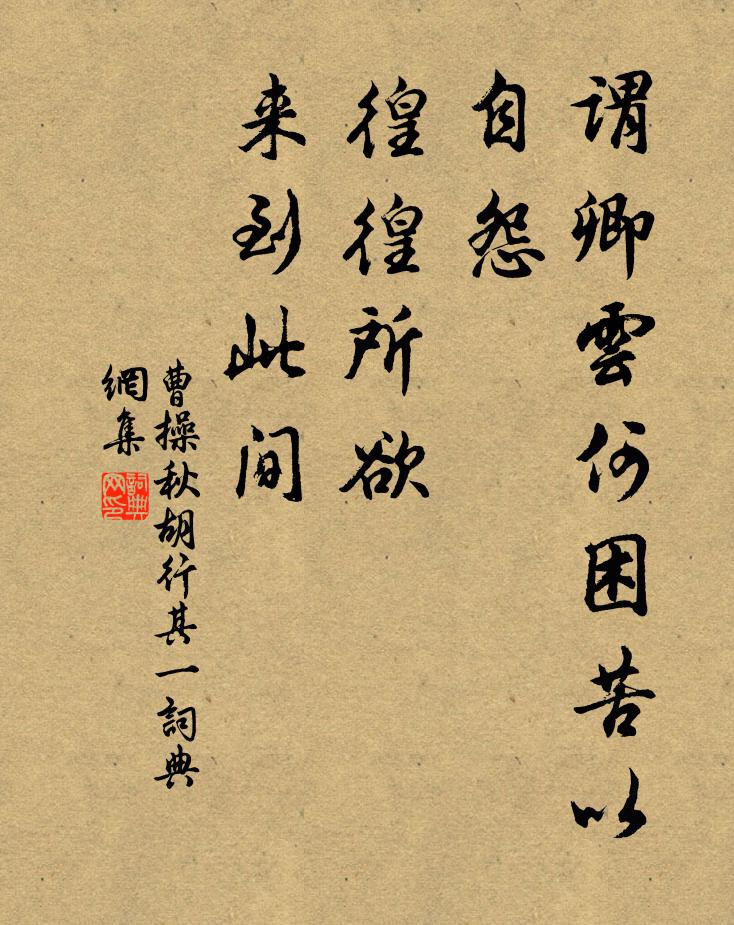 謂卿雲何困苦以
自怨
徨徨所欲
来到此间
曹操秋胡行其一詞典
網集
詞典
网印